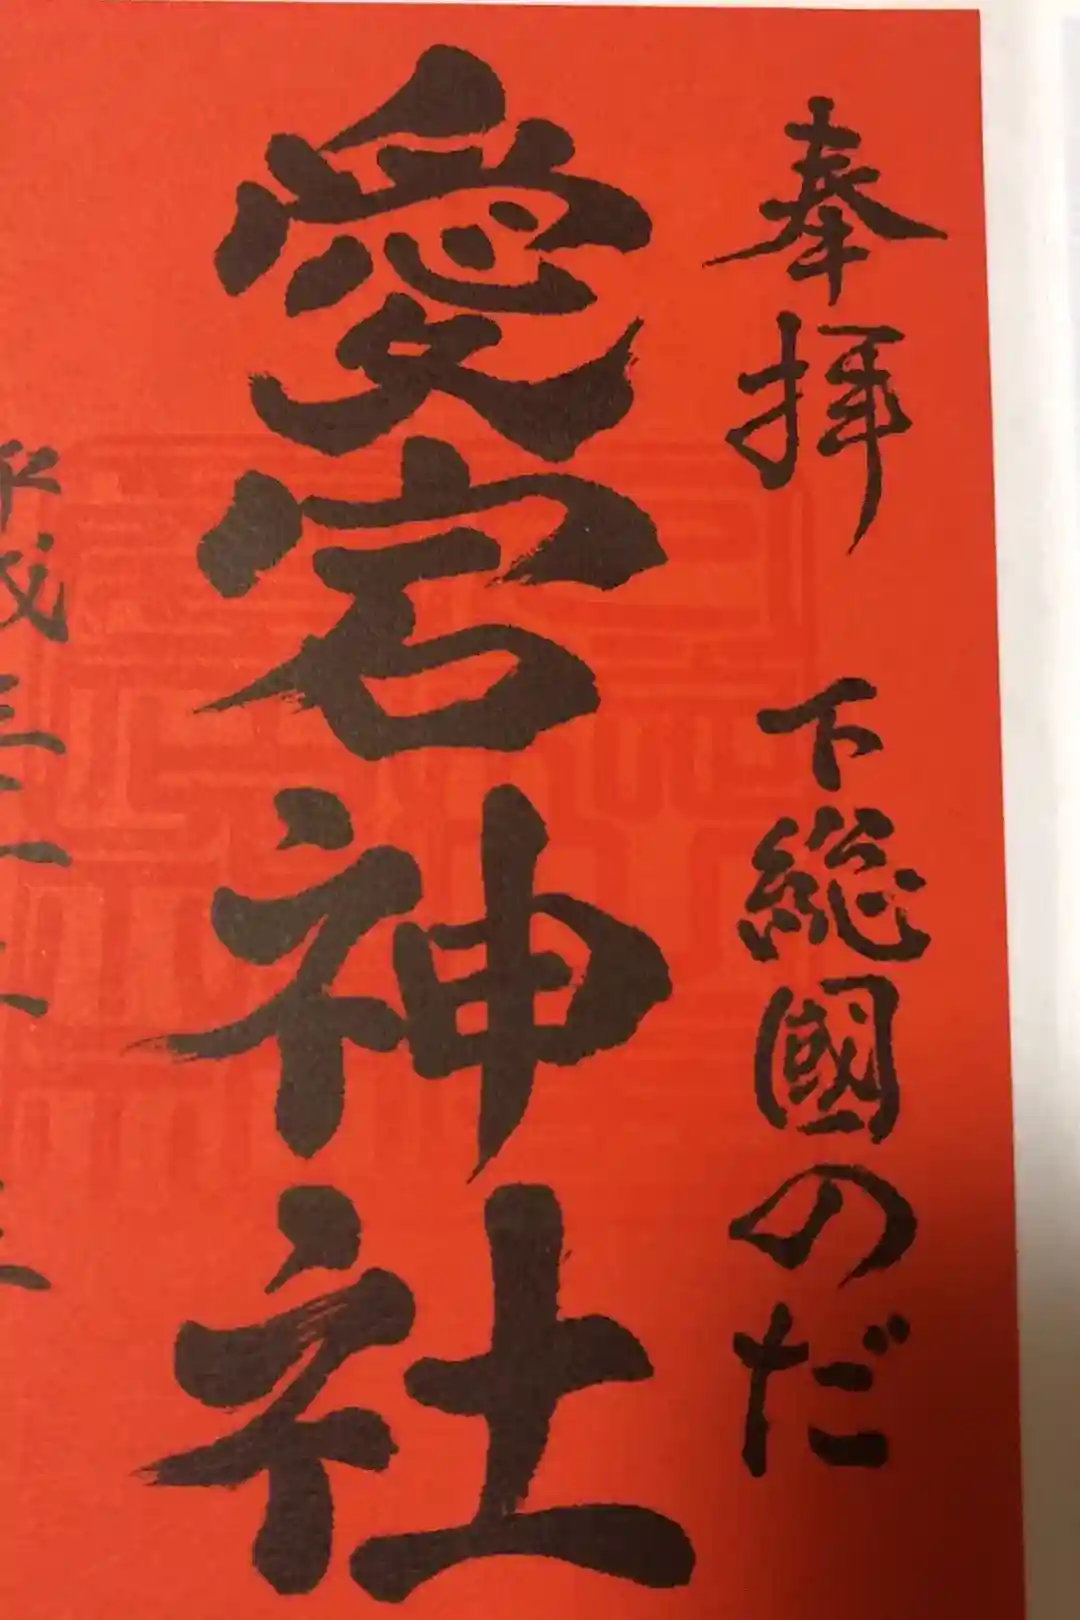 奉拝 下総國のだ
愛宕神社
平成三一